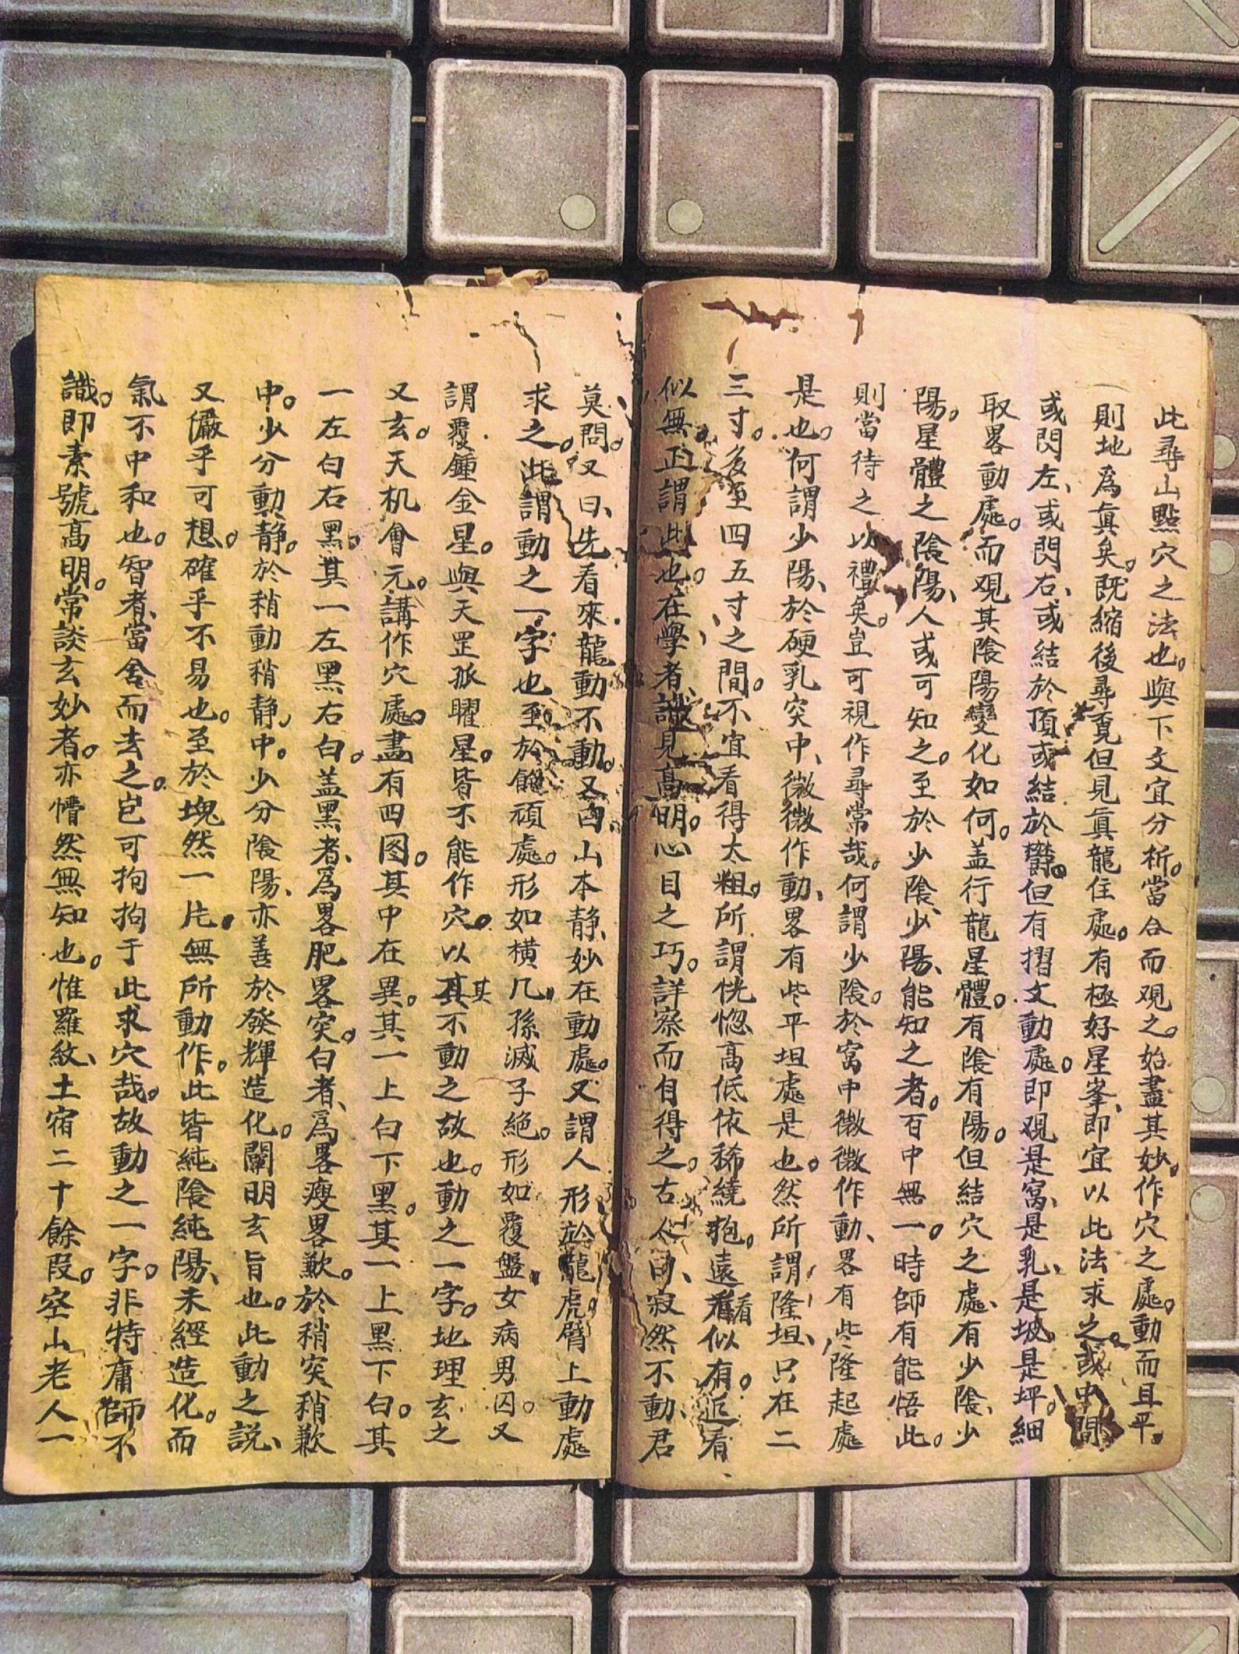 此尋山點穴之法也。與下文宜分析。當合而观之。始盡其妙。作穴之處。動而且平。
則地為真矣。既縮後尋覓但見真龍住處。有極好星峯、即宜以此法求之。或中間
或閃左、或閃右、或結於頂或結於欝。但有摺文動處。即观是窩、是乳、是坡是坪。細
取畧動處。而观其陰陽變化如何。盖行龍星體。有陰有陽。但結穴之處、有少陰、少
陽。星體之陰陽、人或可知之。至於少陰、少陽、能知之者。百中無一。時師有能悟此。
則當待之以禮矣。豈可視作尋常哉。何謂少陰。於窩中微微作動、畧有些隆起處
是也。何謂少陽、於硬乳突中、微微作動、畧有些平坦處是也。然所謂隆坦、只在二
三寸。多至四五寸之間。不宜看得太粗。所謂恍惚高低依稀繞抱。遠看似有。近看
似無。正謂此也。在學者識見高明。心目之巧。詳察而自得之。古人曰、寂然不動、君
莫問。又曰、先看來龍動不動。又曰山本静、妙在動處。又謂人形於龍虎臂上動處
求之。此謂動之一字也。至於飽頑處。形如橫几、孫滅子絕。形如覆盤、女病男囚。又
謂覆鍾金星。與天罡孤曜星。皆不能作穴。以其不動之故也。動之一字。地理玄之
又玄。天机會元。講作穴處。盡有四图。其中在異。其一上白下黑。其一上黑下白。其
一左白右黑。其一左黑右白。盖黑者、為畧肥畧突。白者、為畧瘦畧歉。於稍突稍歉
中。少分動静。於稍動稍静。中。少分陰陽、亦善於發輝造化。闡明玄旨也。此動之説、
又儼乎可想。確乎不易也。至於塊然一片。無所動作。此皆純陰純陽、未經造化。而
氣不中和也。智者、當舍而去之。岂可拘拘于此求穴哉。故動之一字。非特庸師不
識。即素號高明。常談玄妙者。亦懵然無知也。惟羅紋、土宿二十餘段。空山老人一